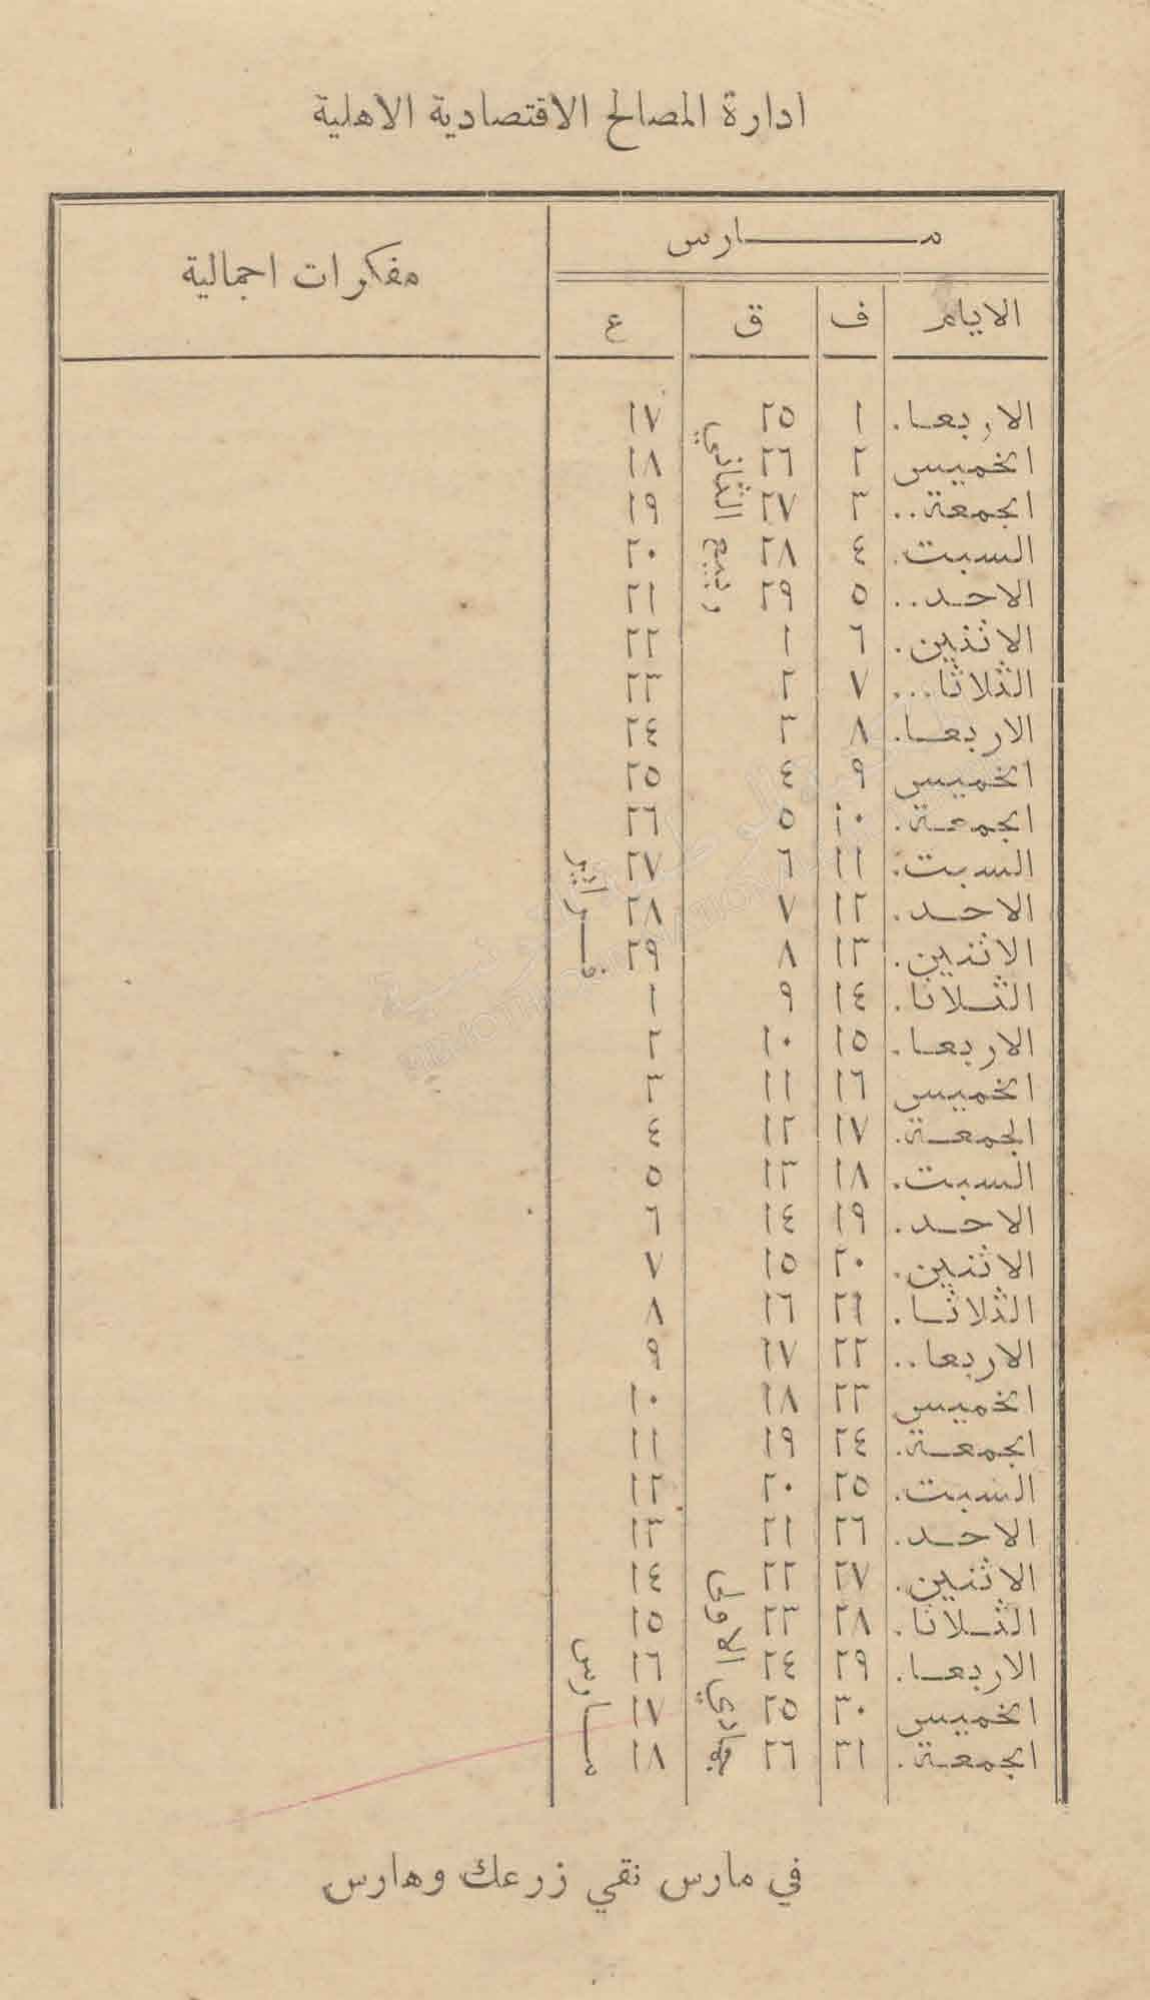 ادارة المصالح الاقتصادية الاهلية
مـــارس
مفكرات اجمالية
الايام ف ق ع
الاربعـا. ١ ٢٥ ١٧
الخميس ٢ ٢٦ ١٨
الجمعة.. ٣ ٢٧ ١٩
السبت. ٤ ٢٨ ٢٠
الاحـد.. ٥ ٢٩ ٢١
ربيع الثاني
الاثنين. ٦ ١ ٢٢
الثلاثا... ٧ ٢ ٢٣
الاربعـا. ٨ ٣ ٢٤
الخميس ٩ ٤ ٢٥
الجمعـة. ١٠ ٥ ٢٦
السبت. ١١ ٦ ٢٧
الاحـد. ١٢ ٧ ٢٨
الاثنين. ١٣ ٨ ٢٩
فـرايير
الثـلاثا. ١٤ ٩ ١
الاربعـا. ١٥ ١٠ ٢
الخميس ١٦ ١١ ٣
الجمعـة. ١٧ ١٢ ٤
السبت. ١٨ ١٣ ٥
الاحـد. ١٩ ١٤ ٦
الاثنين. ٢٠ ١٥ ٧
الثلاثـا. ٢١ ١٦ ٨
الاربعا.. ٢٢ ١٧ ٩
الخميس ٢٣ ١٨ ١٠
الجمعـة. ٢٤ ١٩ ١١
السبت. ٢٥ ٢٠ ١٢
الاحـد. ٢٦ ٢١ ١٣
الاثنين. ٢٧ ٢٢ ١٤
الثـلاثا. ٢٨ ٢٣ ١٥
الاربعـا. ٢٩ ٢٤ ١٦
الخميس ٣٠ ٢٥ ١٧
الجمعـة. ٣١ ٢٦ ١٨
جمادي الاولى
مـارس
في مارس نقي زرعك وهارس